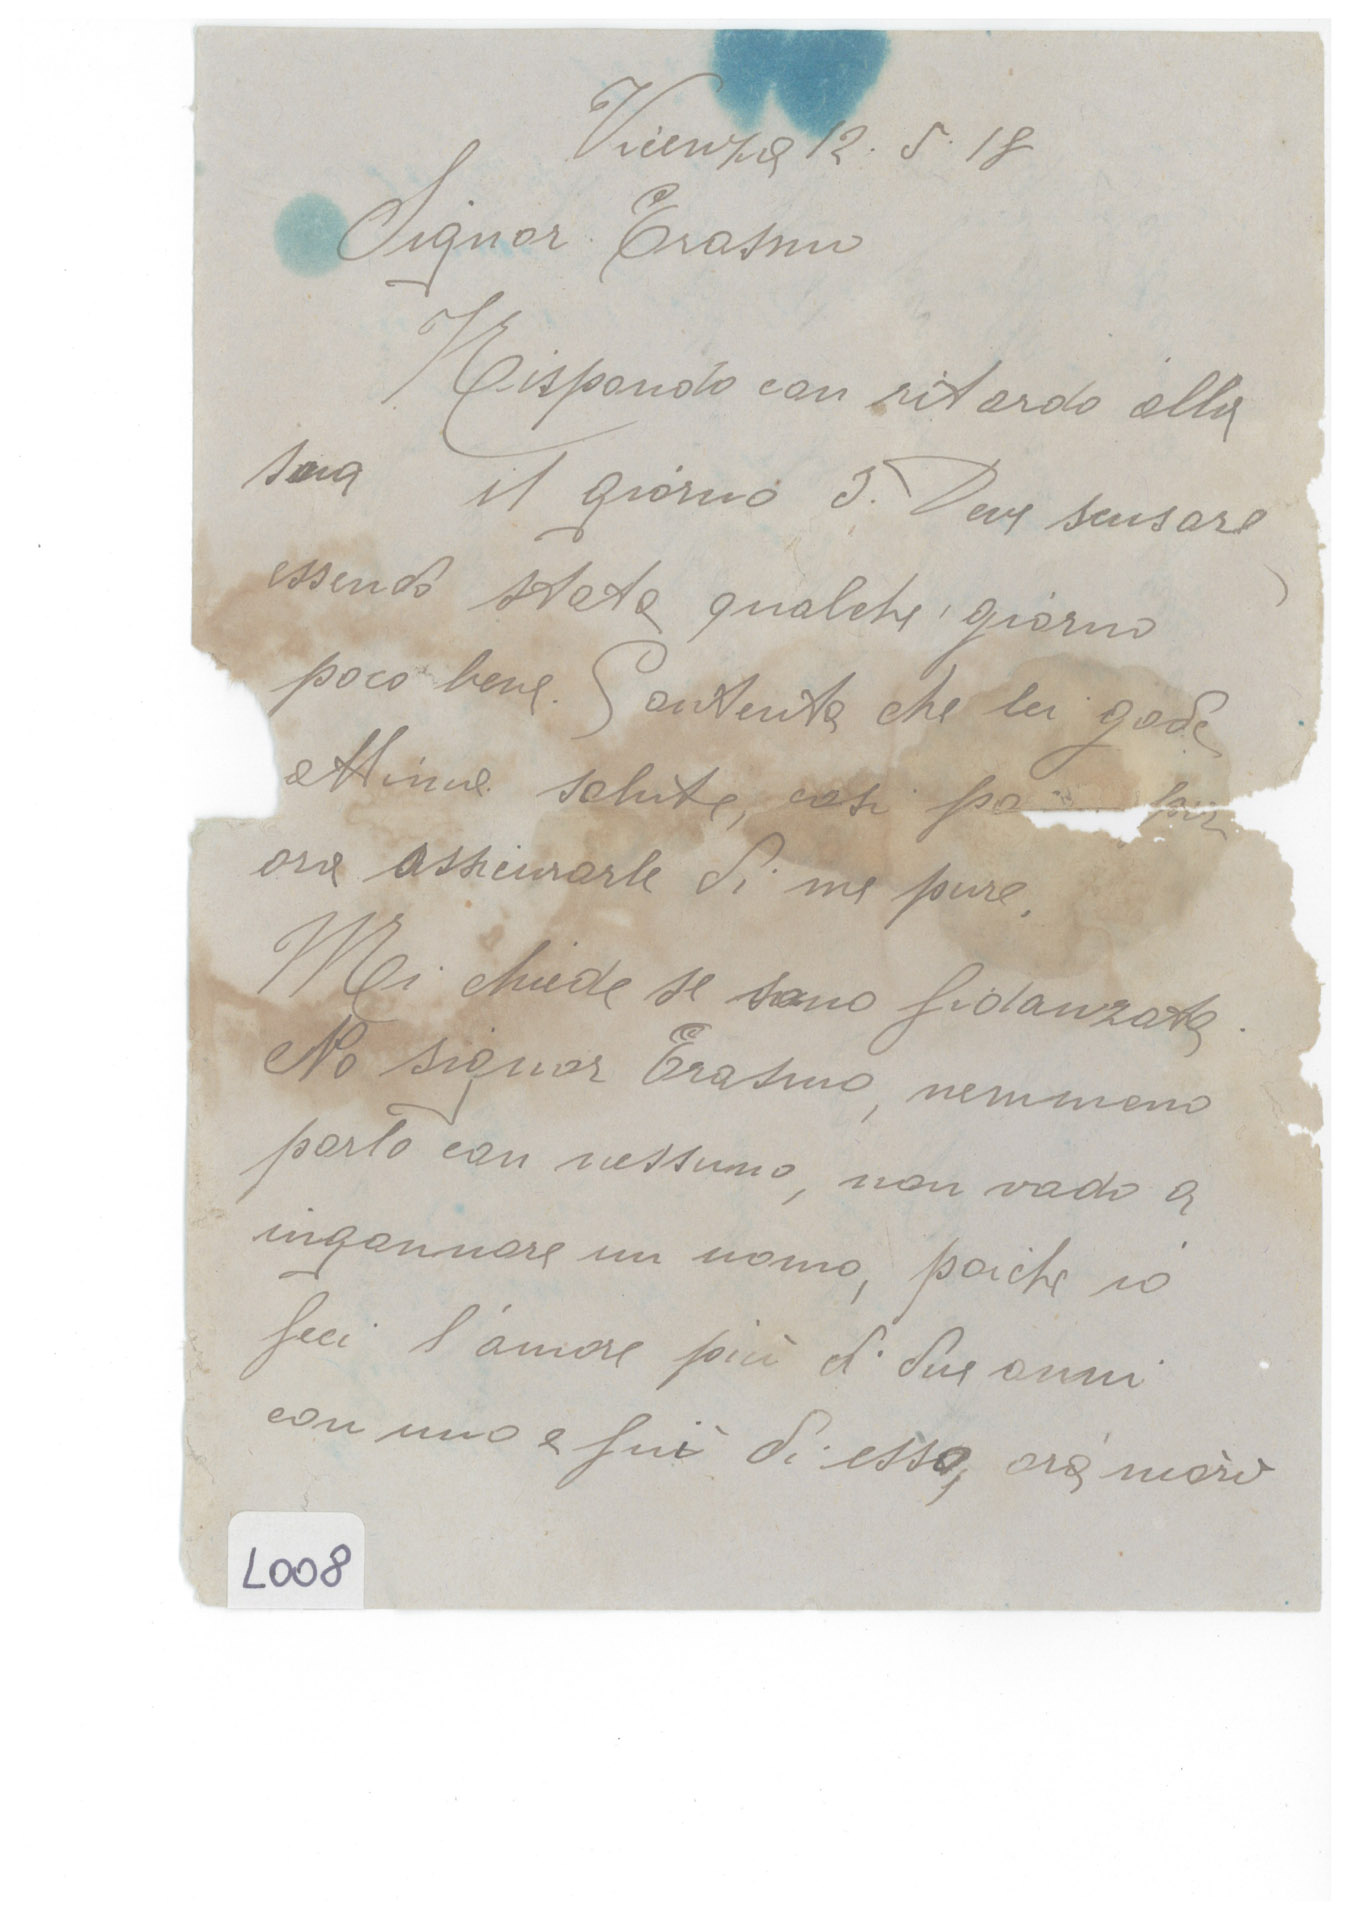 Vicenza 12. 5. 18
Signor Erasmo
Rispondo con ritardo alla
sua il giorno 5. Deve scusare
essendo stata qualche giorno
poco bene. Contenta che lei gode
ottima salute, così per
ora assicurarle di me pure.
Mi chiede se sono fidanzata.
No signor Erasmo, nemmeno
parlo con nessuno, non vado a
ingannare un uomo, poiche io
feci l'amore più di due anni
con uno e fui di esso, ora morì
L008